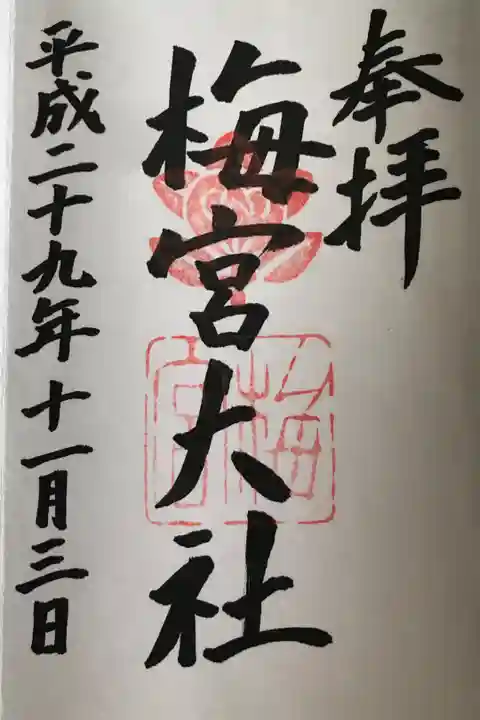 奉拝
梅宮大社
平成二十九年十一月三日
梅宮